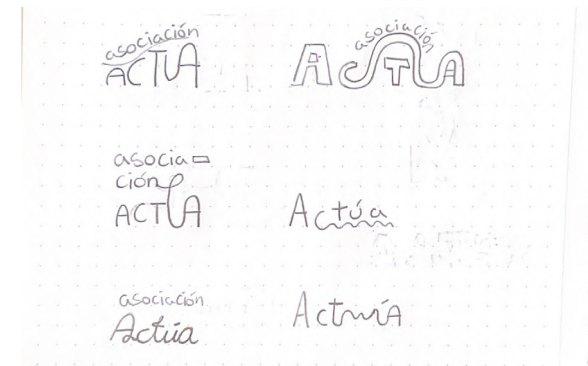 asociación
ACTUA
asociación
ACTUA
asocia
ción
ACTUA
Actúa
asociación
Actúa
Actúa